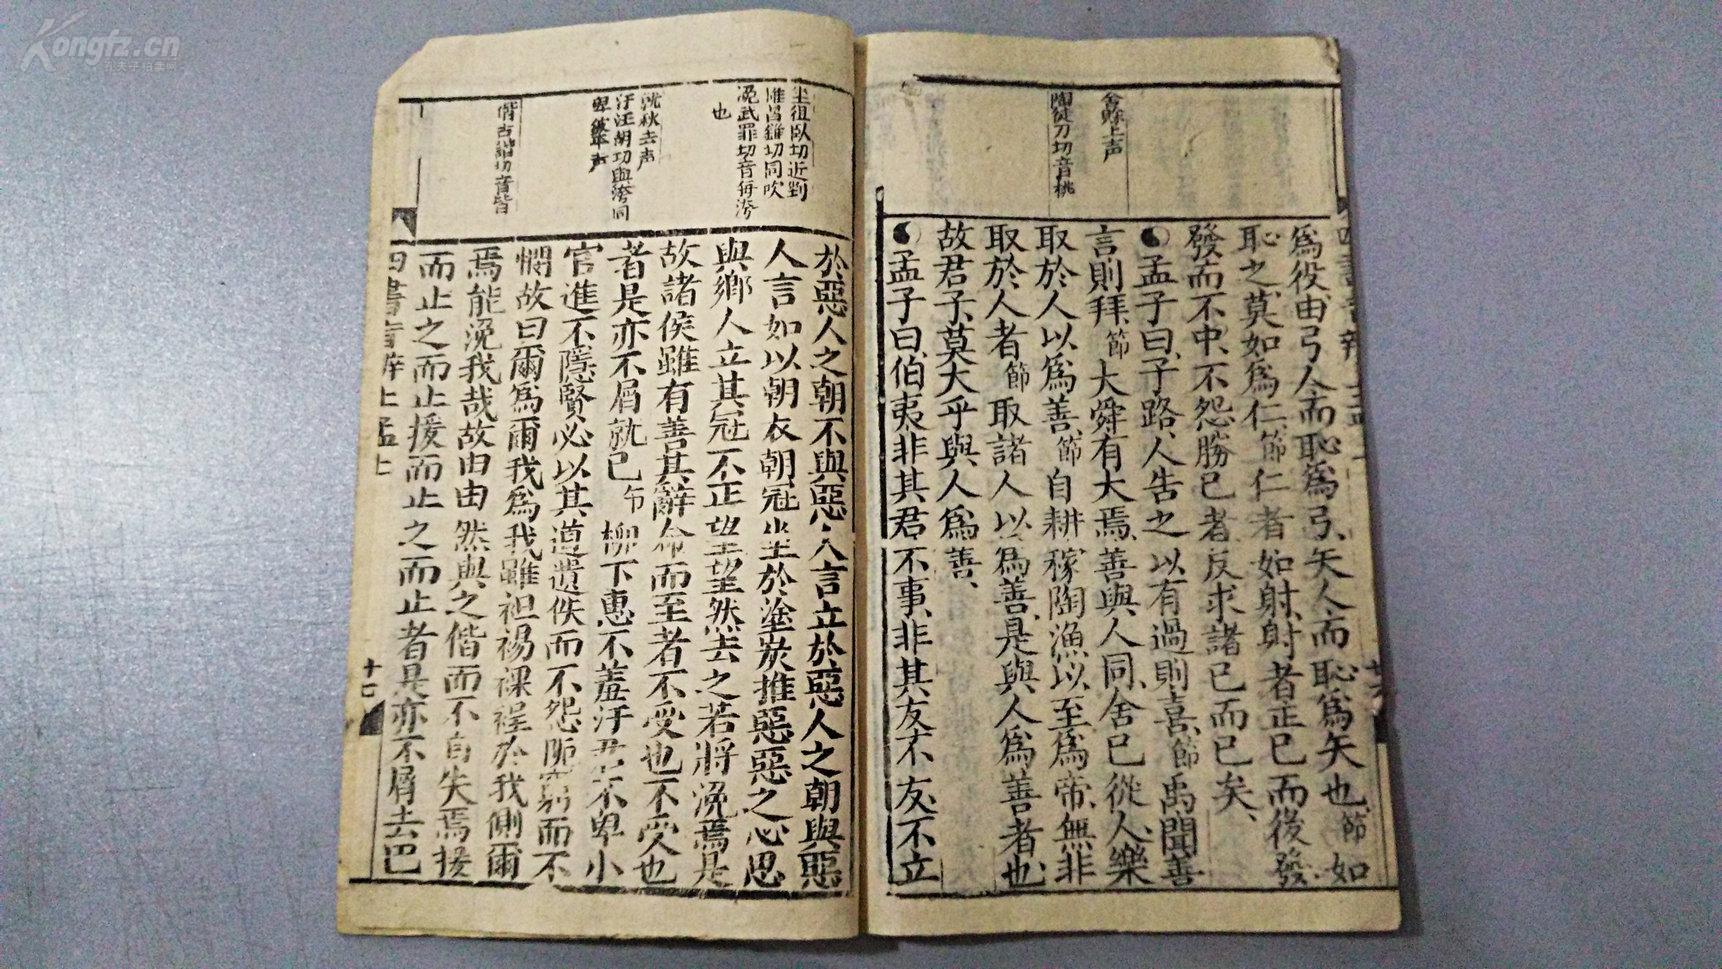 爲役由弓人而恥爲弓矢人而恥爲矢也節如
恥之莫如爲仁節仁者如射射者正已而後發
發而不中不怨勝已者反求諸已而已矣
孟子曰子路人告之以有過則喜節禹聞善
言則拜節大舜有大焉善與人同舍已從人樂
取於人以爲善節自耕稼陶漁以至爲帝無非
取於人者節取諸人以爲善是與人爲善者也
故君子莫大乎與人爲善
孟子曰伯夷非其君不事非其友不友不立
舍賒上声
陶徒刀切音桃
於惡人之朝不與惡人言立於惡人之朝與惡
人言如以朝衣朝冠坐於塗炭推惡惡之心思
與鄉人立其冠不正望望然去之若將浼焉是
故諸侯雖有善其辭命而至者不受也不受也
者是亦不屑就已節柳下惠不羞汙君不卑小
官進不隱賢必以其道遺佚而不怨阨窮而不
憫故曰爾爲爾我爲我雖袒裼裸裎於我側爾
焉能浼我哉故由由然與之偕而不自失焉援
而止之而止援而止之而止者是亦不屑去已
四書音辨上孟上
十七
坐徂臥切近剉
推昌錐切同吹
浼武罪切音每汚
也
就秋去声
汙汪胡切與洿同
卑彼平声
偕古諧切音皆
Kongfz.cn